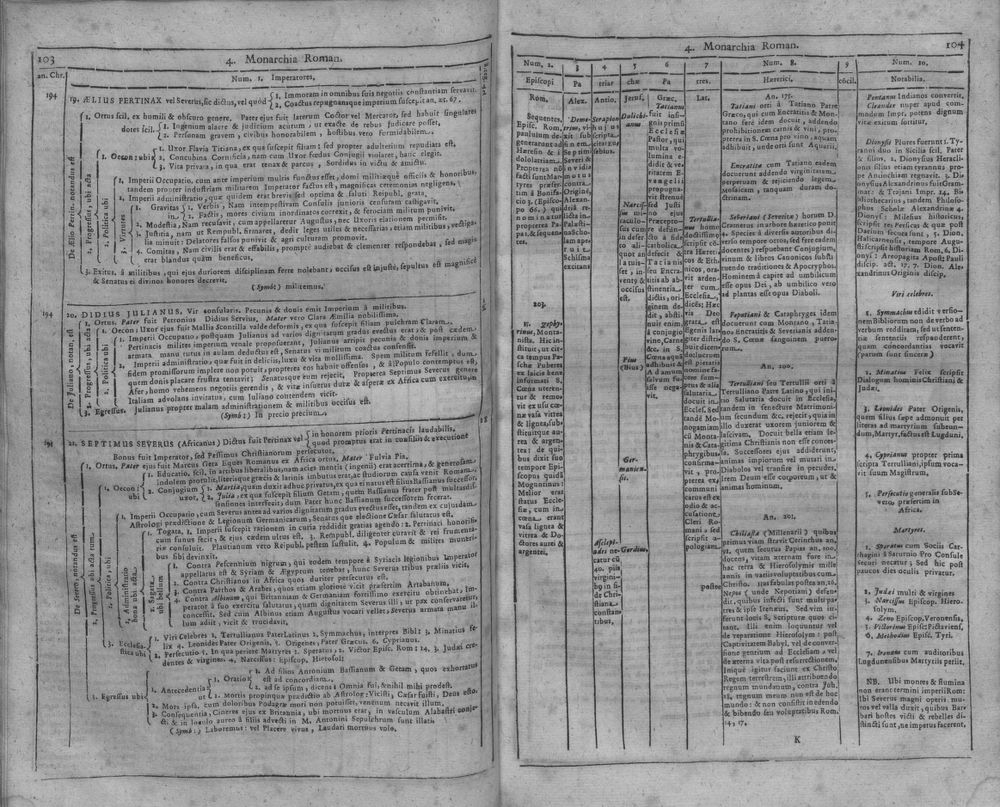 103
4. Monarchia Roman.
an. Chr.
Num. 1. Imperatores.
194
19. ÆLIUS PERTINAX vel Severus, sic dictus, vel quod
1. Immoram in omnibus suis negotiis constantiam servarit.
2. Coactus repugnansque imperium suscepit an. æt. 67.
1. Ortus scil. ex humili & obscuro genere. Pater ejus fuit laterum Coctor vel Mercator, sed habuit singulares
dotes scil.
1. Ingenium alacre & judicium acutum, ut exacte de rebus judicare posset,
2. Personam gravem, civibus honorabilem, hostibus vero formidabilem.
1. Oecon: ubi
1. Uxor Flavia Titiana, ex qua suscepit filium: sed propter adulterium repudiata est,
2. Concubina Cornificia, nam cum Uxor fœdus Conjugii violaret, hanc elegit.
3. Vita privata, in qua erat tenax & parcus, Sordidus in victu & amictu.
De Ælio Pertin. notandus est
2. Progressus, ubi acta
2. Politica ubi
1. Imperii Occupatio, cum ante imperium multis functus esset, domi militiæque officiis & honoribus,
tandem propter industriam militarem Imperator factus est, magnificas ceremonias negligens,
2. Imperii administratio, quæ quidem erat brevis sed optima & saluti Reipubl. grata,
Virtutes in
1. Gravitas
1. Verbis, Nam intempestivam Consulis junioris censuram castigavit,
2. Factis, mores civium inordinatos correxit, & ferociam militum punivit,
2. Modestia, Nam recusavit, cum appellaretur Augustus, nec Uxoris elationem permisit.
3. Justitia, nam ut Rempubl. firmaret, dedit leges utiles & necessarias, etiam militibus, vestigalia
minuit: Delatores falsos punivit & agri culturam promovit.
4. Comitas, Nam civilis erat & affabilis, prompte audiebat & clementer respondebat, sed magis
erat blandus quàm beneficus,
3. Exitus, à militibus, qui ejus duriorem disciplinam ferre nolebant, occisus est injustè, sepultus est magnificè
& Senatus ei divinos honores decrevit.
(Symb:) militemus.
194
20. DIDIUS JULIANUS. Vir consularis. Pecunia & donis emit Imperium à militibus.
1. Ortus. Pater fuit Petronius Didius Severus, Mater vero Clara Æmilia nobilissima.
1. Oecon: Uxor ejus fuit Mallis Scontilla valde deformis, ex qua suscepit filiam pulchram Claram.
De Juliano, notan. est
2. Progressus, ubi acta
2. Politica ubi
1. Imperii Occupatio, postquam Julianus ad varios dignitatum gradus evectus erat; & post cædem
Pertinacis milites imperium venale proposuerant, Julianus arripit pecunia & donis imperium &
armata manu tutus in aulam deductus est, Senatus vi militum coactus consensit.
2. Imperii administratio, quæ fuit in deliciis, luxu & vita mollissima. Spem militum fefellit, dum
fidem promissorum implere non potuit, propterea eos habuit offensos, & à Populo contemptus est,
quem donis placare frustra tentavit; Senatusque eum rejecit, Propterea Septimus Severus genere
Afer, homo vehemens negotiis gerendis, & vitæ insuetus duræ & asperæ ex Africa cum exercitu, in
Italiam advolans invitatus, cum Juliano contendens vicit.
3. Egressus. Julianus propter malam administrationem à militibus occisus est.
(Symb:) In precio precium.
194
21. SEPTIMUS SEVERUS (Africanus) Dictus fuit Pertinax vel
in honorem prioris Pertinacis laudabilis,
quod promptus erat in consiliis & executione
Bonus fuit Imperator, sed Pessimus Christianorum persecutor.
1. Ortus, Pater ejus fuit Marcus Geta Eques Romanus ex Africa ortus, Mater Fulvia Pia.
1. Oecon: ubi
1. Educatio, scil. in artibus liberalibus, nam acies mentis (ingenii) erat acerrima, & generosam
indolem protulit, literisque græcis & latinis imbutus erat, ac studiorum causa venit Romam.
2. Conjugium uxor,
1. Martia, quam duxit adhuc privatus, ex qua einatus est filius Bassianus successor,
2. Julia, ex qua suscepit filium Getam, quem Bassianus frater post multas dissensiones
interfecit; dum Pater hunc Bassianum successorem fecerat.
De Severo, notandus est
2. Progressus ubi acta tum.
2. Politica, ubi
1. Imperii Occupatio, cum Severus antea ad varios dignitatum gradus evectus esset, tandem ex cujusdam
Astrologi prædictione & Legionum Germanicarum, Senatus que electione Cæsar salutatus est.
2. Administratio bona ubi
1. Togata, 1. Imperii suscepit rationem in curia reddidit gratias agendo: 2. Pertinaci honorificum
funus fecit, & ejus cædem ultus est. 3. Rempubl. diligenter curavit & rei frumentariæ
consuluit. Plautianum vero Reipubl. pestem sustulit. 4. Populum & milites muneribus
sibi devinxit.
2. Sagata ubi bellum
1. Contra Pescennium nigrum, qui eodem tempore à Syriacis legionibus Imperator
appellatus est & Syriam & Ægyptum tenebat, hunc Severus tribus præliis vicit,
2. Contra Christianos in Africa quos duriter persecutus est.
3. Contra Parthos & Arabes, quos etiam gloriose vicit prasertim Artabanum,
4. Contra Albinum, qui Britanniam & Germaniam fortissimo exercitu obtinebat, Imperator
à suo exercitu salutatus, quam dignitatem Severus illi, ut pax conservaretur,
concessit. Sed cum Albinus etiam Augustus vocari vellet, Severus armata manu illum
adiit, vicit & trucidavit.
3. Ecclesiastica ubi
1. Viri Celebres 1. Tertullianus Pater Latinus 2. Symmachus, interpres Bibl: 3. Minutius felix
4. Leonides Pater Origenis, 5. Origenes, Pater Græcus. 6. Cyprianus.
2. Persecutio 5. In qua periere Martyres 1. Speratus, 2. Victor Episc. Rom: 14, 3. Judæi credentes
& virgines. 4. Narcissus: Episcop, Hierosol:
3. Egressus ubi
1. Antecedentia
1. Oratio
1. Ad filios Antonium Bassianum & Getam, quos exhortatus
est ad concordiam,
2. ad se ipsum, dicens: Omnia fui, & nihil mihi prodest.
ut
2. Mortis propinquæ prædictio ab Astrolog: Vicisti, Cæsar fuisti, Deus esto.
2. Mors ipsa, cum doloribus Podagræ mori non potuisset, venenum necavit illum.
3. Consequentia, Cineres ejus ex Britannia, ubi mortuus erat, in vasculum Alabastri conjecti
& in loculo aureo à filiis advecti in M. Antonini Sepulchrum sunt illati
(Symb:) Laboremus: vel Placere vivus, Laudari mortuus volo.
4. Monarchia Roman.
104
Num. 2.
3
4
5
6
7
Num. 8.
9
Num. 10.
Episcopi
Pa
triar
chæ
Pa
tres.
Hæretici.
cōcil.
Notabilia.
Rom.
Sequentes,
Episc. Rom,
paululum degenerarunt
ad
Hæresin & idololatriam.
Propterea nō
facti sunt Martyres
præsertim
à Bonifacio
3. (Episcopo
66.) qui
nominatur
propterea Papas,
& sequentes.
203.
E. zephyrinus,
Montanista.
Hic instituit,
ut circa
tempus Paschæ
Puberes
ex facie bene
informati S.
Cœna uterentur,
& removit
ex usu cœnæ
vasa vitrea
& lignea, substituitque
aurea
& argentea:
de quibus
dixit suo
tempore Episcopus
quidã
Moguntinus:
Melior erat
status Ecclesiæ,
cum in
cœna erant
vasa lignea &
vitrea & Doctores
aurei &
argentei,
Alex.
Demetrius,
vir
bonus
sed in
finem
Septimi
Severi &
invidia
motus
contra
Origenē,
Alexandriā
relicta in
Palæstinam
aperuit
Schisma
excitans
Antio.
Serapion
hujus
scripta
citantur
ab
Eusebio
Asclepiades
necatur
cū
40. piis
virginibus
in fide
Christiana
constantibus,
Jerus,
Dulichianus
Narcissus
miraculosus
cum
defectū
olei
quod
aqua
situisset,
invenit &
occisus
est.
Pius
(Bius)
Germanicus.
Gordius.
Græc.
Tatianus
fuit insignis
primū
Ecclesiæ
Pastor, qui
multa volumina
edidit
& veritatem
Evangelii
propugnavit
strenue
sed Justini
ejus
Præceptoris
obitu
à fide
catholica
defecit &
Tatianus
seu Encratitis
ab abstinentia
dictis, originem
dedit,
abstinuit
enim
à conjugio
vino, Carne
& c. in S.
Cœna aquā
adhibuit &
Adamum
salvum fuisse
negavit.
Lat.
Tertullianus
homo
doctissimus
scripsit cōtra
Hæreticos
& Ethnicos,
oravit
ardenter
cum
Ecclesia,
dicens; Hæc
vis Deo
grata est.
Egenis largiter
distribuit,
fuit quidem
doctus
& orator
plenus
amœne semper
virtutis
& alia
docuit in
Eccles. Sed
tandē Monogamiam
cū
Montanista
&
Cataphrygibus
confirmavit,
propterea
excommunicatus
est ex
odio & accusatione
Cleri Romani,
sed
scripsit apologiam,
postea
An. 175.
Tatiani orti à Tatiano Patre
Græco, qui cum Encratitis & Montano
fere idem docuit, addendo
prohibitionem carnis & vini, propterea
in S. Cœna pro vino, aquam
adhibuit, unde orti sunt Aquarii.
Encratitæ cum Tatiano eædem
docuerunt addendo virginitatem
perpetuam & rejiciendo legem
Mosaicam, tanquam duram doctrinam.
Severiani (Severitæ) horum D.
Cramerus in arbore hæretico ponit
4. Species à diversis autoribus diverso
tempore ortos, sed fere eadem
docentes) respuebant Conjugium,
vinum & libros Canonicos substituendo
traditiones & Apocryphos.
Hominem à capite ad umbilicum
esse opus Dei, ab umbilico vero
ad plantas esse opus Diaboli.
Peputiani & Cataphryges idem
docuerunt cum Montano, Tatiano,
Encratitis & Severianis addendo
S. Cœnæ sanguinem puerorum.
An. 200.
Tertulliani seu Tertullii orti à
Tertulliano Patre Latino, qui initio
Salutaria docuit in Ecclesia,
tandem in senectute Matrimonium
secundum &c. rejecit, quia in
illo duxerat uxorem juniorem &
lascivam. Docuit bella etiam legitima
Christianis non esse concessa.
Successores ejus addiderunt,
animas impiorum vel mutari in
Diabolos vel transire in pecudes,
item Deum esse corporeum, ut &
animas hominum.
An. 201.
Chiliastæ (Millenarii) quibus
primus viam stravit Cerinthus an.
71, quem secutus Papias an, 100.
docens, vitam æternam fore in
hac terra & Hierosolymis mille
annis in variis voluptatibus cum
Christo. Has fabulas postea an, 263
Nepos (unde Nepotiani) defendit,
quibus infecti sunt multi patres
& ipse Irenæus. Sed vim inferunt
locis S. Scripturæ quos citant.
Illi enim loquuntur vel
de reparatione Hierosolym: post
Captivitatem Babyl. vel de conversione
gentium ad Ecclesiam, vel
de æterna vita post resurrectionem.
Inique igitur faciunt ex Christo
Regem terrestrem, illi attribuendo
regnum mundanum, contra Joh.
18, regnum meum non est de hoc
mundo: & non consistit in edendo
& bibendo seu voluptatibus Rom.
14, 17.
Pentanus Indianos convertit,
Cleander nuper apud commodum
Impr. potens dignum
vitæ exitum sortitur.
Dionysii Plures fuerunt 1. Tyranni
duo in Sicilia scil, Pater
& filius. 2. Dionysius Heracliensis
filius etiam tyrannus propter
Antiochiam reguavit. 3. Dionysius
Alexandrinus fuit Grammaticus:
& Trojani Impr. 24, Bibliothecarius,
tandem Philosophus
Scholæ Alexandrinæ 4.
Dionys: Milesius historicus,
scripsit res Persicas & quæ post
Darium secuta sunt, 5. Dion,
Halicarnensis, tempore Augusti
scripsit historiam Rom, 6, Dionysi:
Areopagita Apostl: Pauli
discip. act. 17, 7. Dion. Alexandrinus
Originis discip.
Viri celebres.
1. Symmachus edidit versionem
Bibliorum non de verbo ad
verbum redditam, sed ut sententiæ
sententiis responderent,
quam concordantias vocavit
(parum sunt sincere)
2. Minutius Felix scripsit
Dialogum hominis Christiani &
Judæi.
3. Leonides Pater Origenis,
quem filius sæpe admonuit per
literas ad martyrium subeundum,
Martyr, factus est Lugduni,
4. Cyprianus propter prima
scripta Tertulliani, ipsum vocavit
suum Magistrum.
5. Persecutio generalis sub Severo,
præsertim in
Africa.
Martyres.
1. Speratus cum Sociis Carthagini
à Saturnio Pro Consule
securi necatur; Sed hic post
paucos dies oculis privatur.
2. Judæi multi & virgines
3. Narcissus Episcop. Hierosolym.
4. Zeno Episcop. Veronensis,
5. Victorinus Episc: Pictaviens,
6. Methodius Episc. Tyri.
7. Irenæus cum auditoribus
Lugdunensibus Martyriis periit,
NB. Ubi montes & flumina
non erant termini imperii Rom:
Ibi Severus magni operis muros
vel valla duxit, quibus Barbari
hostes victi & rebelles distincti
sunt, ne impetus facerent.
K